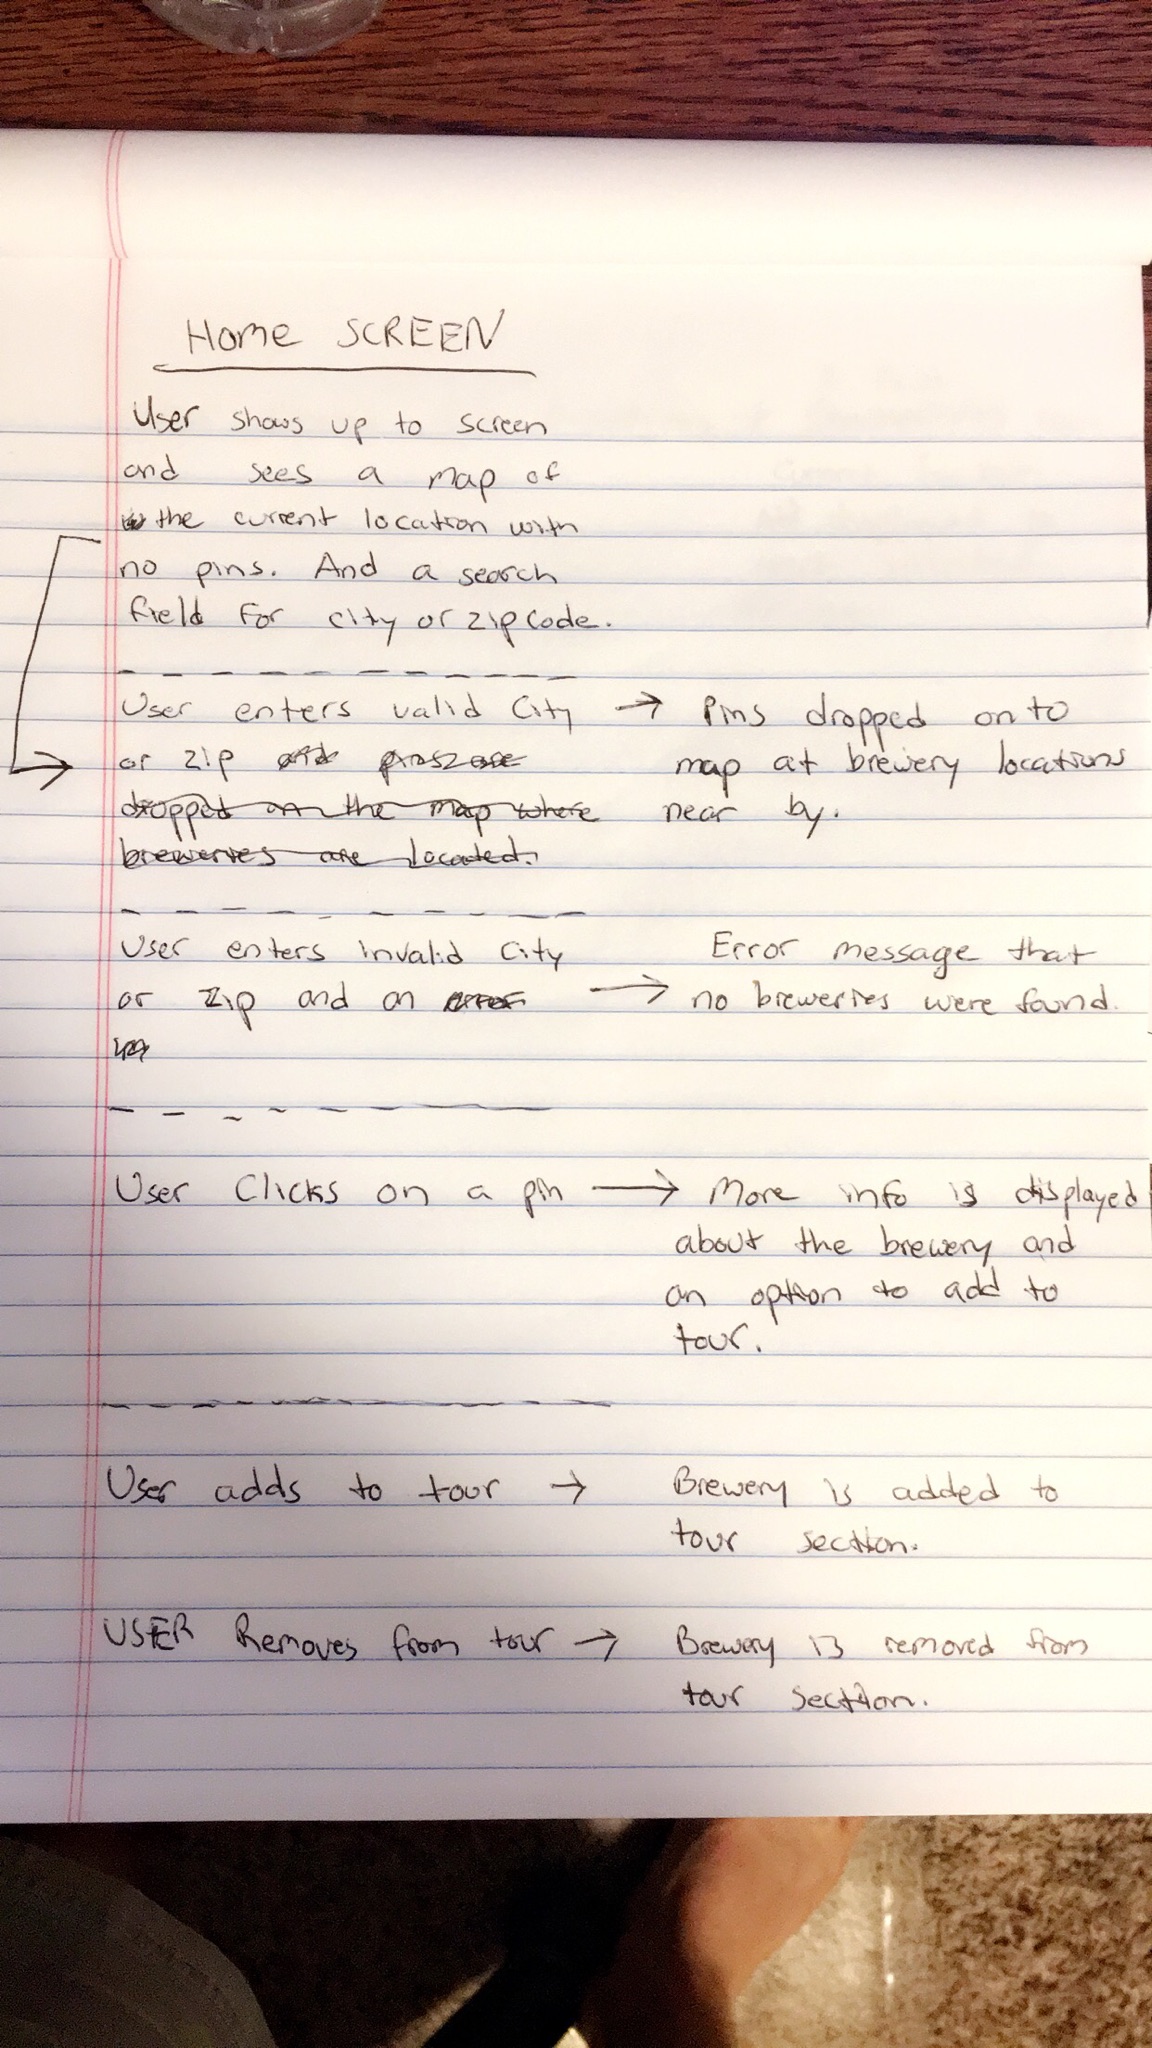 Home SCREEN
User shows up to screen
and sees a map of
the current location with
no pins. And a search
field for city or zipcode.
User enters valid City → Pins dropped on to
or zip and pins are map at brewery locations
dropped on the map where near by.
breweries are located.
User enters invalid City Error message that
or Zip and an error → no breweries were found.
User Clicks on a pin → More info is displayed
about the brewery and
an option to add to
tour.
User adds to tour → Brewery is added to
tour section.
USER Removes from tour → Brewery is removed from
tour section.